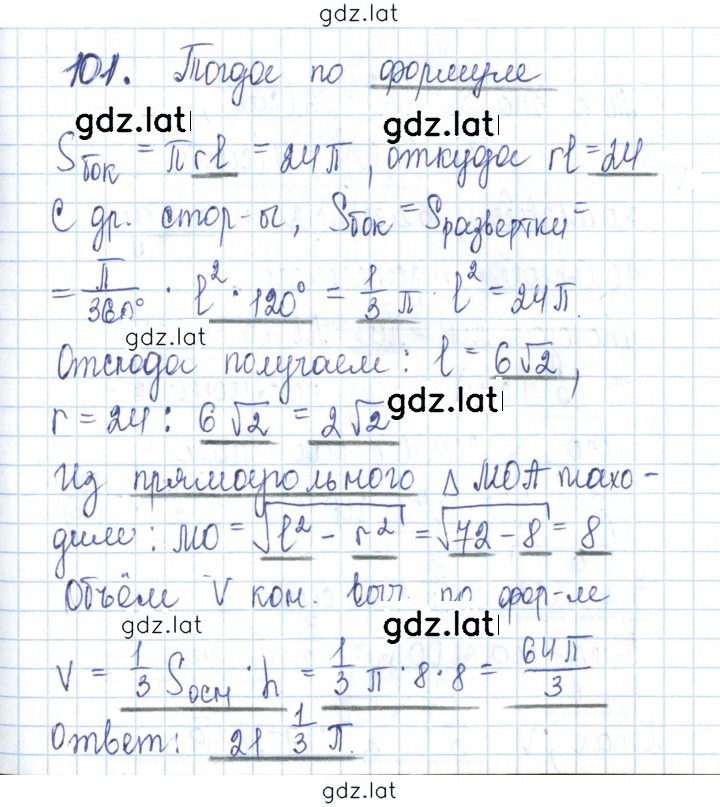 gdz.lat
101. Тогда по формуле
gdz.lat gdz.lat
Sбок = πrl = 24π, откуда rl = 24
С др. стор-ы, Sбок = Sразвертки =
= π/360° · l² · 120° = 1/3 π · l² = 24π.
gdz.lat
Отсюда получаем: l = 6√2,
gdz.lat
r = 24 : 6√2 = 2√2
Из прямоугольного Δ МОА нахо-
дим: МО = √(l² - r²) = √(72 - 8) = 8
Объём V кон. выч. по фор-ле
gdz.lat gdz.lat
V = 1/3 Sосн · h = 1/3 π · 8 · 8 = 64π/3
Ответ: 21 1/3 π.
gdz.lat